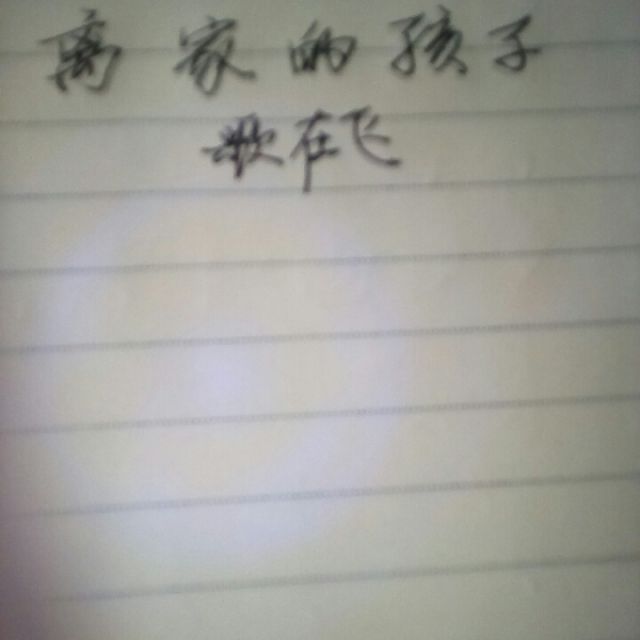 离家的孩子
歌在飞